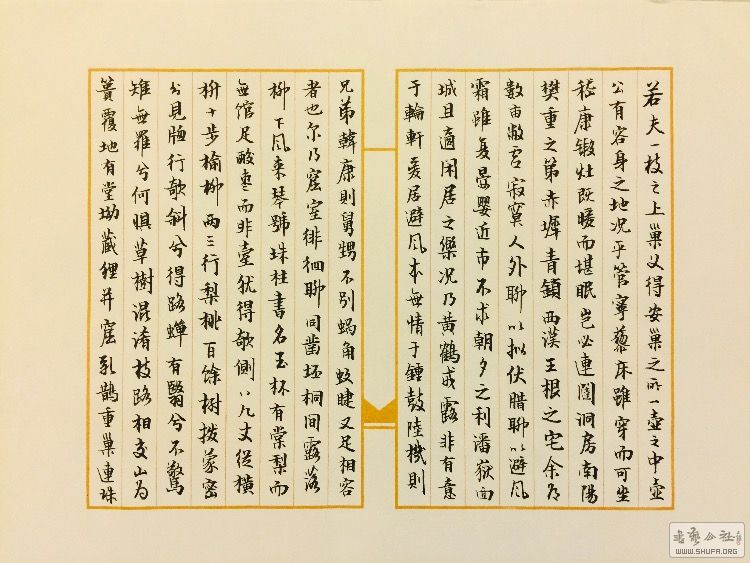 若夫一枝之上巢父得安巢之所一壺之中壺
公有容身之地况乎管寧藜床雖穿而可坐
嵇康鍛灶既暖而堪眠岂必連闥洞房南陽
樊重之第赤墀青鎖西漢王根之宅余有
數亩敝窓寂寞人外聊以拟伏腊聊以避风
霜雖复晏嬰近市不求朝夕之利潘嶽面
城且適闲居之樂况乃黄鶴戒露非有意
于輪軒爰居避风本無情于鍾鼓陸機則
兄弟韓康則舅甥不别蝸角蚊睫又足相容
者也尔乃窟室徘徊聊同凿坯桐間露落
柳下风来琴號珠柱書名玉杯有棠梨而
無馆足酸枣而非臺犹得欹側八九丈從横
十步榆柳两三行梨桃百餘樹撥蒙密
兮見牕行欹斜兮得路蟬有翳兮不驚
雉無羅兮何惧草樹混淆枝路相交山为
簣覆地有堂坳藏貍并窟乳鵲重巢連珠
书艺公社
WWW.SHUFA.ORG